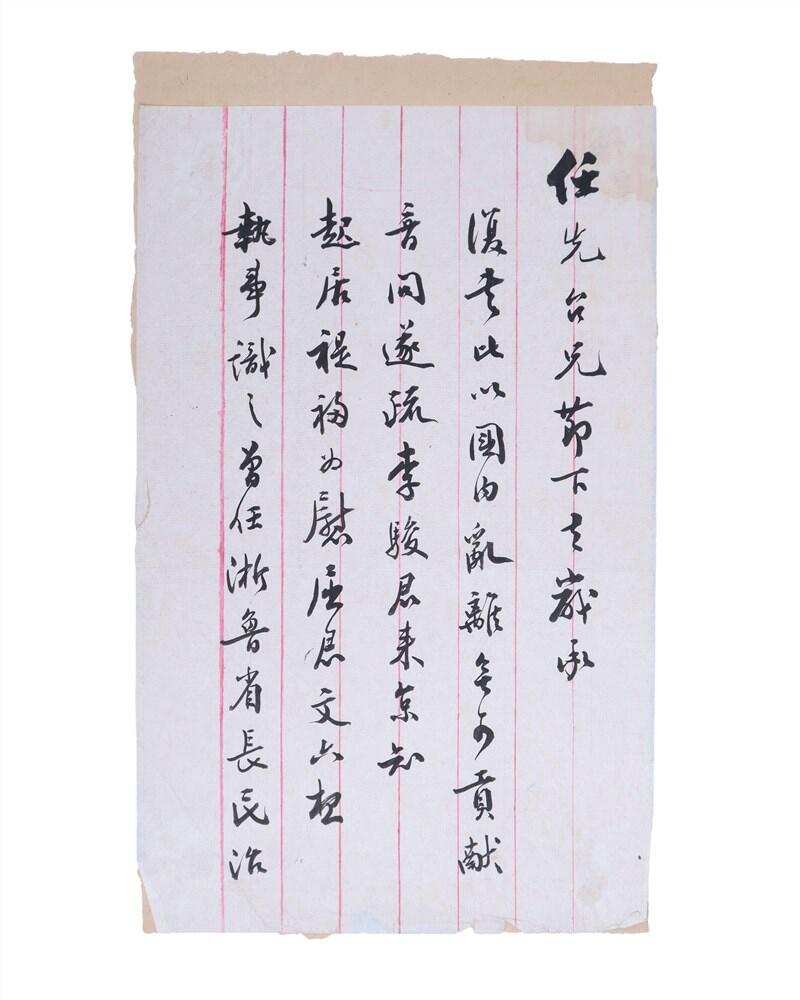 任先台兄節下去歲承
復書比以國內亂離無可貢献
音問遂疏李駿君来京知
起居禔福為慰屈君文六想
執事識之曾任浙魯省長民治